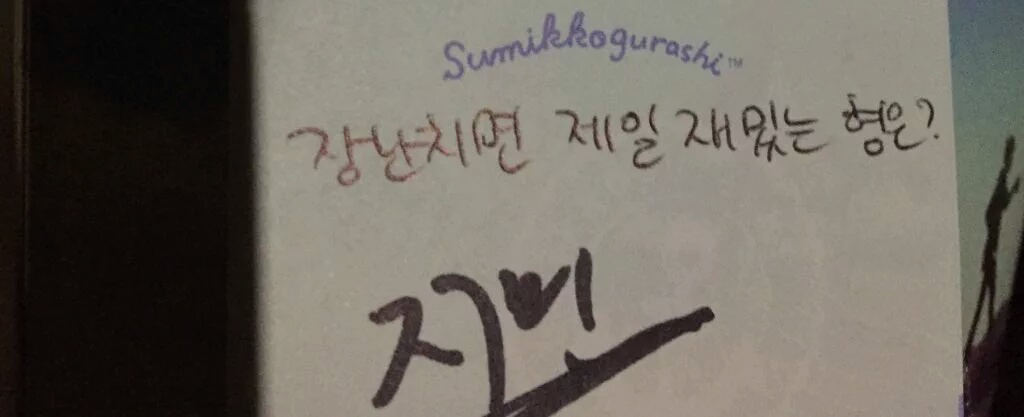 Sumikkogurashi™
장난치면 제일 재밌는 형은?
지민